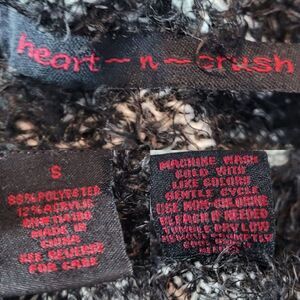 heart~n~crush
S
88% POLYESTER
12% ACRYLIC
MADE IN
CHINA
SEE REVERSE
FOR CARE
MACHINE WASH
COLD WITH
LIKE COLORS
GENTLE CYCLE
USE NON-CHLORINE
BLEACH IF NEEDED
TUMBLE DRY LOW
REMOVE PROMPTLY
COOL IRON